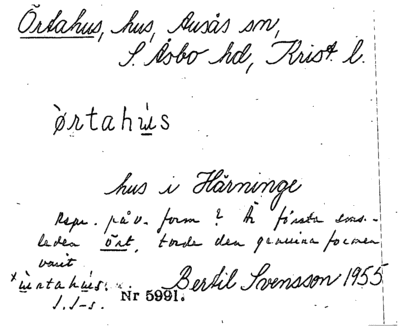 Örtahus, hus, Ausås sn,
S. Åsbo hd, Krist. l.
ø̀rtahù̱s
hus i Härninge
Repr. påv. form? Är första sms.-
leden ört, torde den genuina formen
varit
*ù̱rtahú̱s.
S.I-s.
Nr 5991.
Bertil Svensson 1955